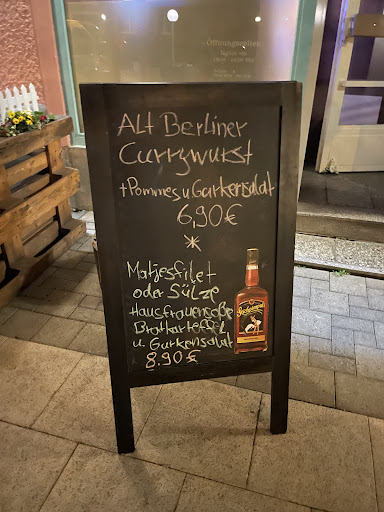 Öffnungszeiten
Alt Berliner
Currywurst
+ Pommes u Gurkensalat
6,90€
*
Matjesfilet
oder Sülze
Hausfrauensoße
Bratkartoffel
u. Gurkensalat
8.90€